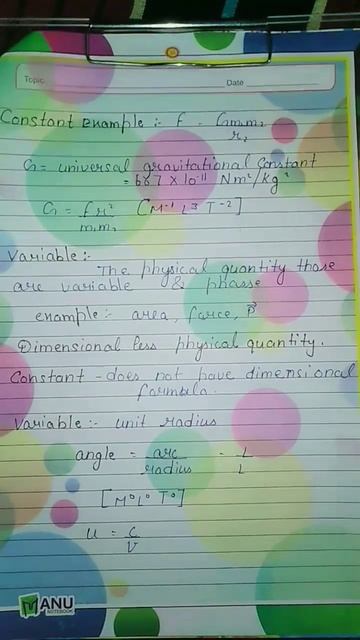 Topic
Date
Constant example :- f = Gm1m2
r2
G = universal gravitational constant
= 667 X 10-11 Nm2/kg2
G = fr2 [M-1 L3 T-2]
m1m2
Variable :-
The physical quantity those
are variable &
example :- area, farce, P
Dimensional less physical quantity.
Constant - does not have dimensional
formula.
Variable :- unit radius
angle = arc = L
radius L
[M° L° T°]
u = C
V
MANU
NOTEBOOK